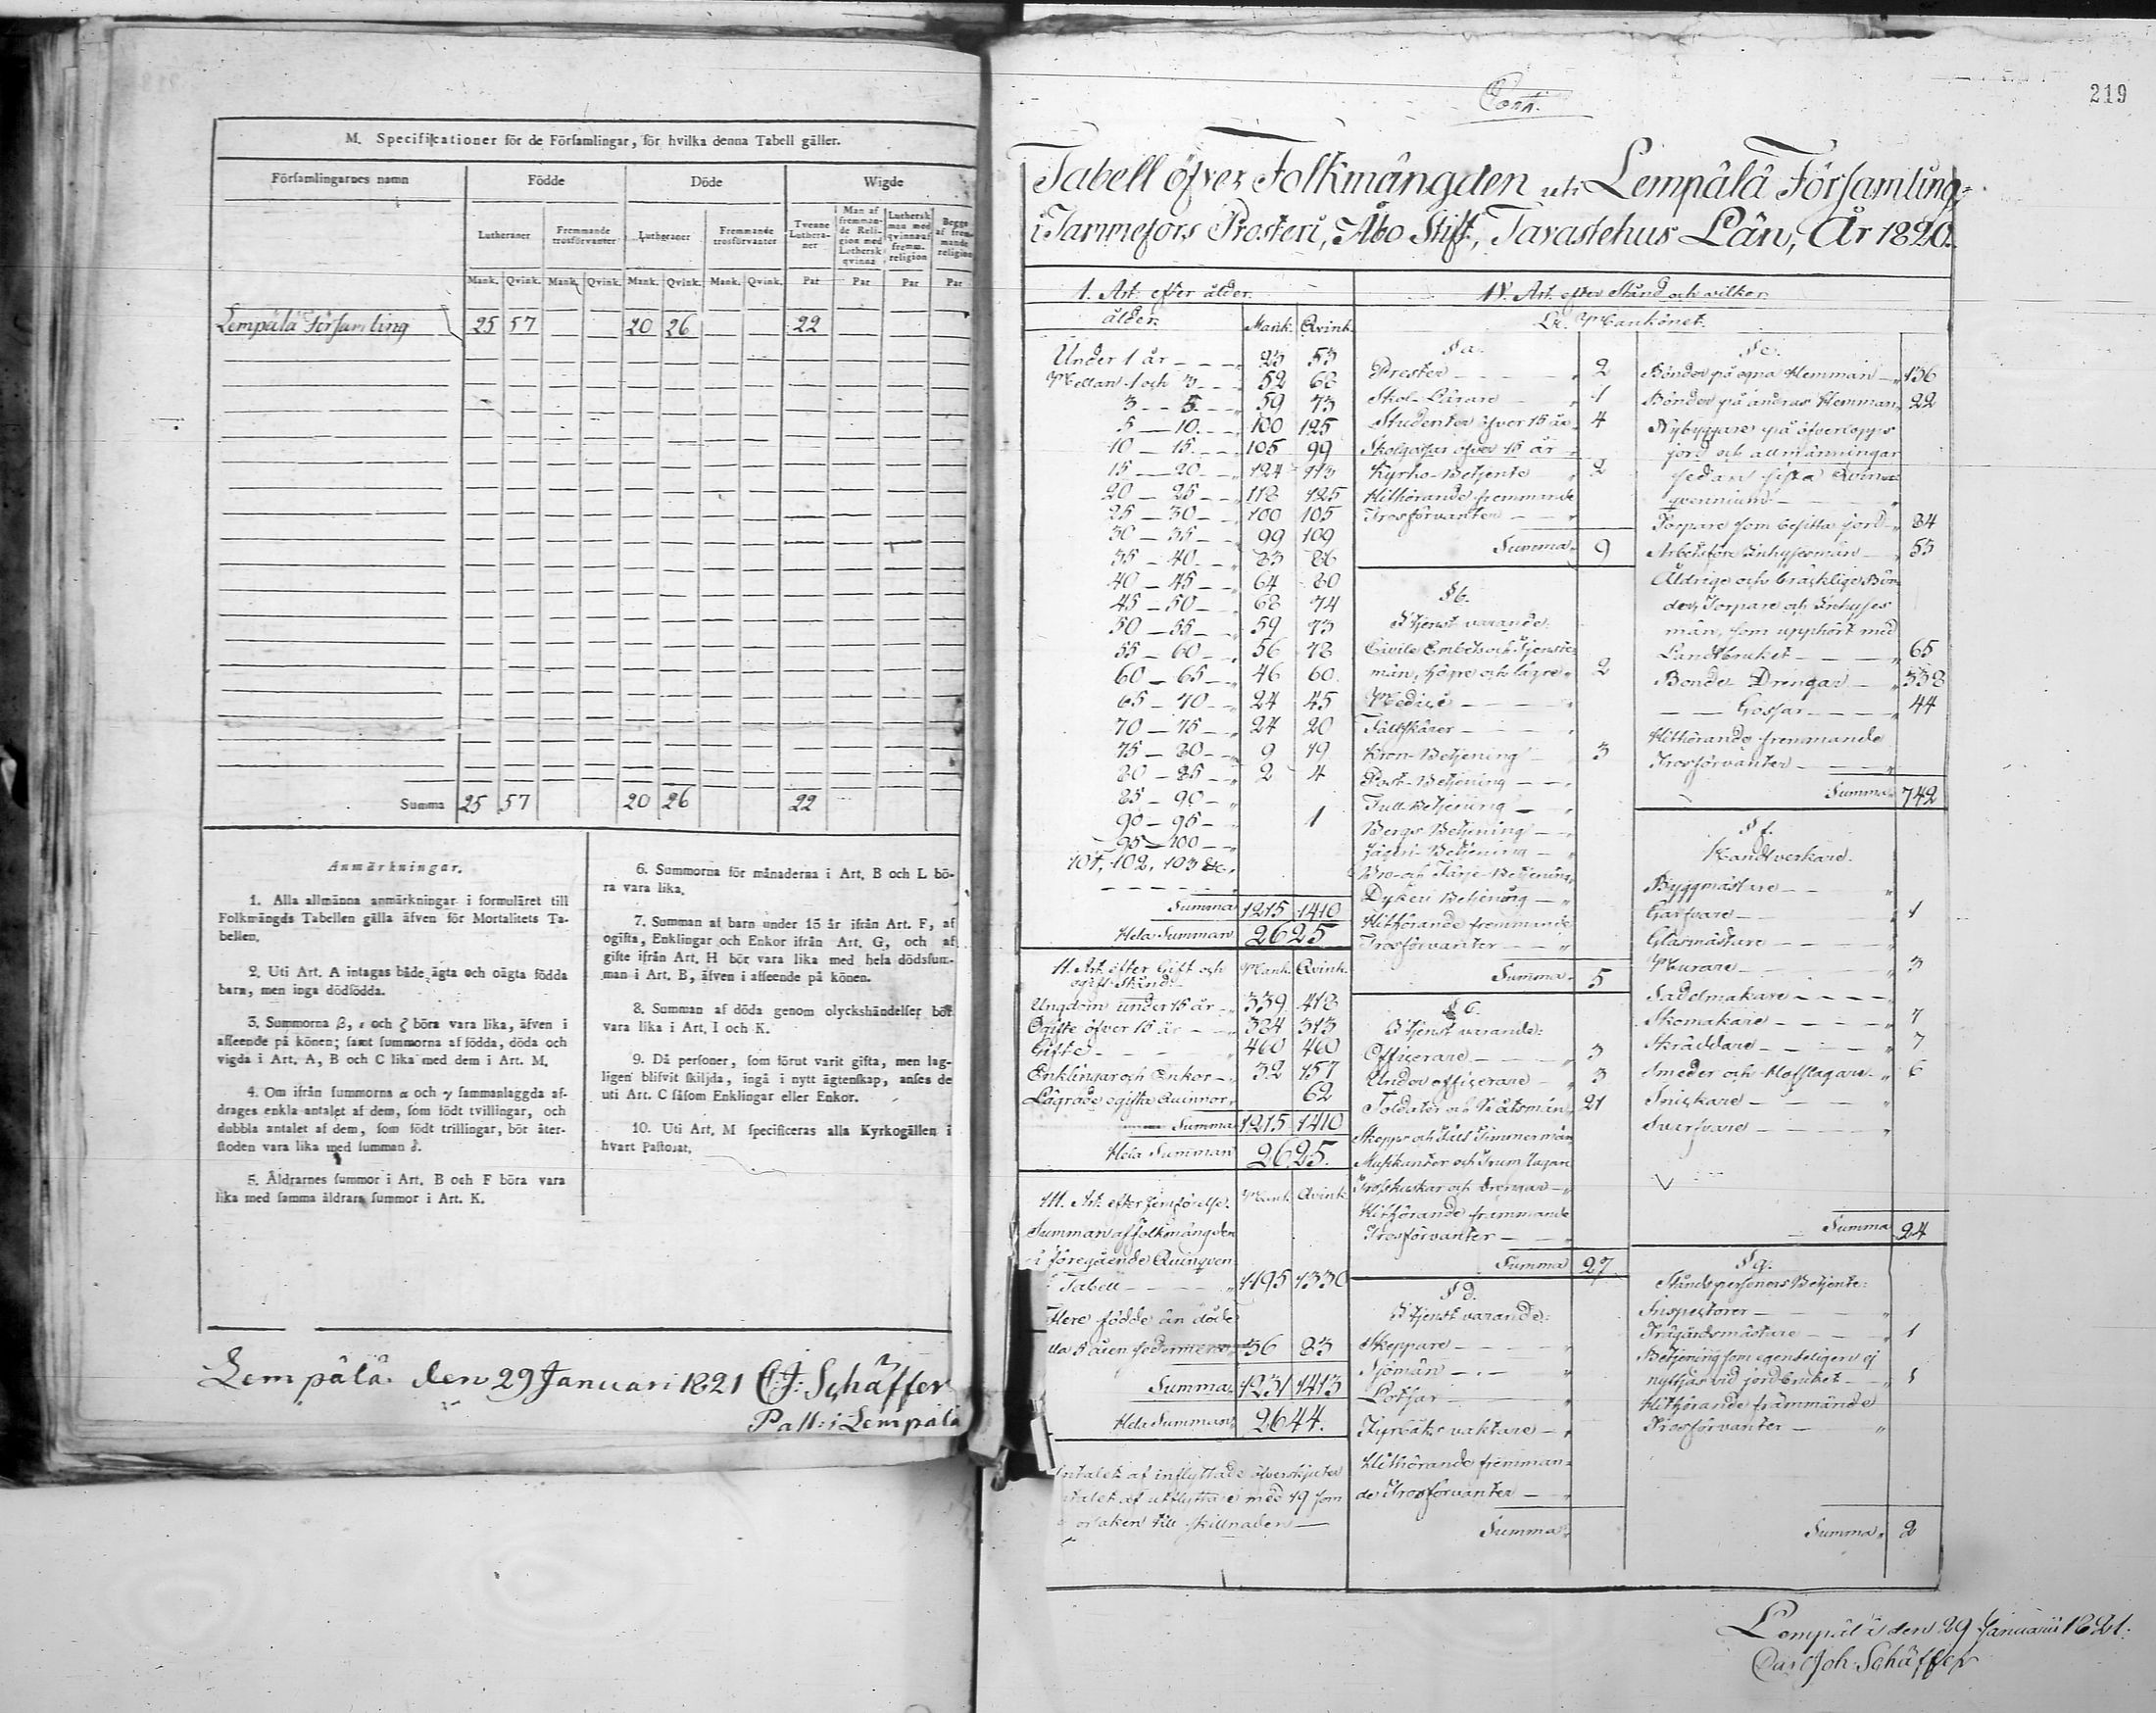 M. Specificationer för de Församlingar, för hvilka denna Tabell gäller.
Församlingarnes namn Födde Döde Wigde
Lutheraner Fremmande trosförvanter Lutheraner Fremmande trosförvanter Tvenne Lutheraner Man af fremmande Religion med Luthersk qvinna Luthersk man med qvinna af fremm. religion Begge af fremmande religion
Mank. Qvink. Mank. Qvink. Mank. Qvink. Mank. Qvink. Par Par Par Par
Lempälä Församling 25 57 20 26 22
Summa 25 57 20 26 22
Anmärkningar.
1. Alla allmänna anmärkningar i formuläret till
Folkmängds Tabellen gälla äfven för Mortalitets Ta-
bellen.
2. Uti Art. A intagas både ägta och oägta födda
barn, men inga dödfödda.
3. Summorna β, ε och ζ böra vara lika, äfven i
afseende på könen; samt summorna af födda, döda och
vigda i Art. A, B och C lika med dem i Art. M.
4. Om ifrån summorna α och γ sammanlaggda af-
drages enkla antalet af dem, som födt tvillingar, och
dubbla antalet af dem, som födt trillingar, bör åter-
stoden vara lika med summan δ.
5. Åldrarnes summor i Art. B och F böra vara
lika med samma åldrars summor i Art. K.
6. Summorna för månaderna i Art. B och L bö-
ra vara lika.
7. Summan af barn under 15 år ifrån Art. F, af
ogifta, Enklingar och Enkor ifrån Art. G, och af
gifte ifrån Art. H bör vara lika med hela dödssum-
man i Art. B, äfven i afseende på könen.
8. Summan af döda genom olyckshändelser bör
vara lika i Art. I och K.
9. Då personer, som förut varit gifta, men lag-
ligen blifvit skiljda, ingå i nytt ägtenskap, anses de
uti Art. C såsom Enklingar eller Enkor.
10. Uti Art. M specificeras alla Kyrkogällen i
hvart Pastorat.
Lempälä den 29 Januari 1821 C.J: Schäffer
Past: i Lempälä
219
Tabell öfver Folkmängden uti Lempälä Församling,
i Tammefors Prosteri, Åbo Stift, Tavastehus Län, År 1820.
I. Art. efter ålder.
ålder. Mank. Qvink.
Under 1 år 23 53
Mellan 1 och 3 52 68
3 - 5 59 73
5 - 10 100 125
10 - 15 105 99
15 - 20 124 113
20 - 25 118 125
25 - 30 100 105
30 - 35 99 109
35 - 40 83 86
40 - 45 64 80
45 - 50 68 74
50 - 55 59 73
55 - 60 56 78
60 - 65 46 60
65 - 70 24 45
70 - 75 24 20
75 - 80 9 19
80 - 85 2 4
85 - 90
90 - 95 1
95 - 100
101, 102, 103 &c.
Summa 1215 1410
Hela Summan 2625
II. Art. efter Gift och ogift Stånd. Mank. Qvink.
Ungdom under 15 år 339 418
Ogifte öfver 15 år 384 313
Gifte 460 460
Enklingar och Enkor 32 157
Lägrade ogifta Quinnor 62
Summa 1215 1410
Hela Summan 2625.
III. Art. efter Jemförelse. Mank. Qvink.
Summan af folkmängden
i föregående Quinqven
Tabell 1195 1330
Flere födde än döde
36 83
Summa 1231 1413
Hela Summan 2644.
Antalet af inflyttade öfverskjuter
antalet af utflyttade med 19 som
orsaken till skillnaden
IV. Art. efter Stånd och vilkor
Mankönet.
§ a.
Prester 2
Skol-Lärare 1
Studenter öfver 15 år 4
Skolgossar öfver 15 år
Kyrko-Betjente 2
Hithörande fremmande
Trosförvanter
Summa 9
§ b.
I tjenst varande:
Civile Embets och Tjenste
män, högre och lägre 2
Medici
Fältskärer
Kron-Betjening 3
Post-Betjening
Tull-Betjening
Bergs-Betjening
Jägeri-Betjening
Bro- och Färje-Betjening
Dykeri Betjening
Hithörande fremmande
Trosförvanter
Summa 5
§ c.
I tjenst varande:
Officerare 3
Under officerare 3
Soldater och Båtsmän 21
Skepps och Timmermän
Musikanter och Trumslagare
Trosskuskar och drengar
Hithörande främmande
Trosförvanter
Summa 27
§ d.
I tjenst varande:
Skeppare
Sjömän
Lotsar
Fyrbåks vaktare
Hithörande fremman-
de Trosförvanter
Summa
§ e.
Bönder på egna Hemman 136
Bönder på andras Hemman 22
Nybyggare på öfverlopps
jord och allmänningar
sedan sista Quin
qvennium
Torpare som besitta jord 84
Arbetsföre Inhysesmän 53
Åldrige och bräcklige Bön
der, Torpare och Inhyses
män, som upphört med
Landtbruket 65
Bonde Drengar 338
Gossar 44
Hithörande fremmande
Trosförvanter
Summa 742
§ f.
Handtverkare.
Byggmästare
Garfvare 1
Glasmästare
Murare 3
Sadelmakare
Skomakare 7
Skräddare 7
Smeder och Hofslagare 6
Snickare
Svarfvare
Summa 24
§ g.
Ståndspersoners Betjente:
Inspectorer
Trägårdsmästare 1
Betjening som egenteligen ej
nyttjas vid jordbruket 1
Hithörande främmande
Trosförvanter
Summa 2
Lempälä den 29 Januarii 1821.
Carl Joh: Schäffer